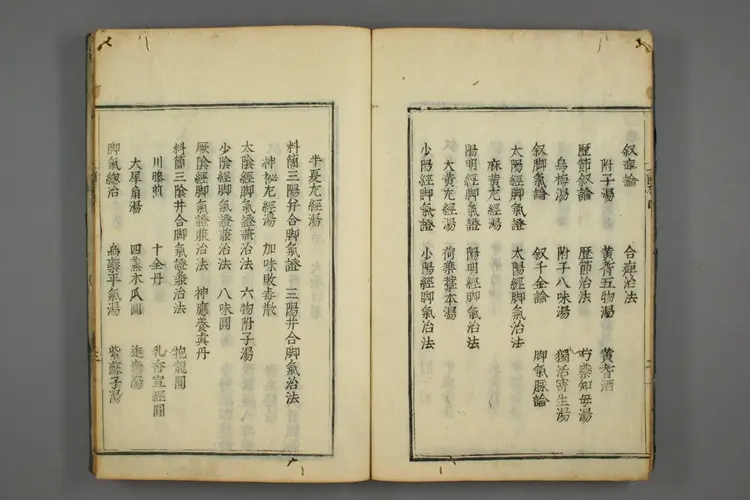 叙痺論 合痺治法
附子湯 黄耆五物湯 黄耆酒
歴節叙論 歴節治法
烏梅湯 附子八味湯 獨活寄生湯
叙脚氣論 叙千金論 脚氣脉論
太陽經脚氣證 太陽經脚氣治法
麻黄左經湯
陽明經脚氣證 陽明經脚氣治法
大黄左經湯 荷葉藁本湯
少陽經脚氣證 少陽經脚氣治法
半夏左經湯
料簡三陽并合脚氣證 三陽并合脚氣治法
神秘左經湯 加味敗毒散
太陰經脚氣證兼治法 六物附子湯
少陰經脚氣證兼治法 八味圓
厥陰經脚氣證兼治法 神應養真丹
料簡三陰并合脚氣證兼治法 抱龍圓
川膝煎 十全丹 乳香宣經圓
大犀角湯 四蒸木瓜圓
脚氣總治 烏藥平氣湯 紫蘇子湯